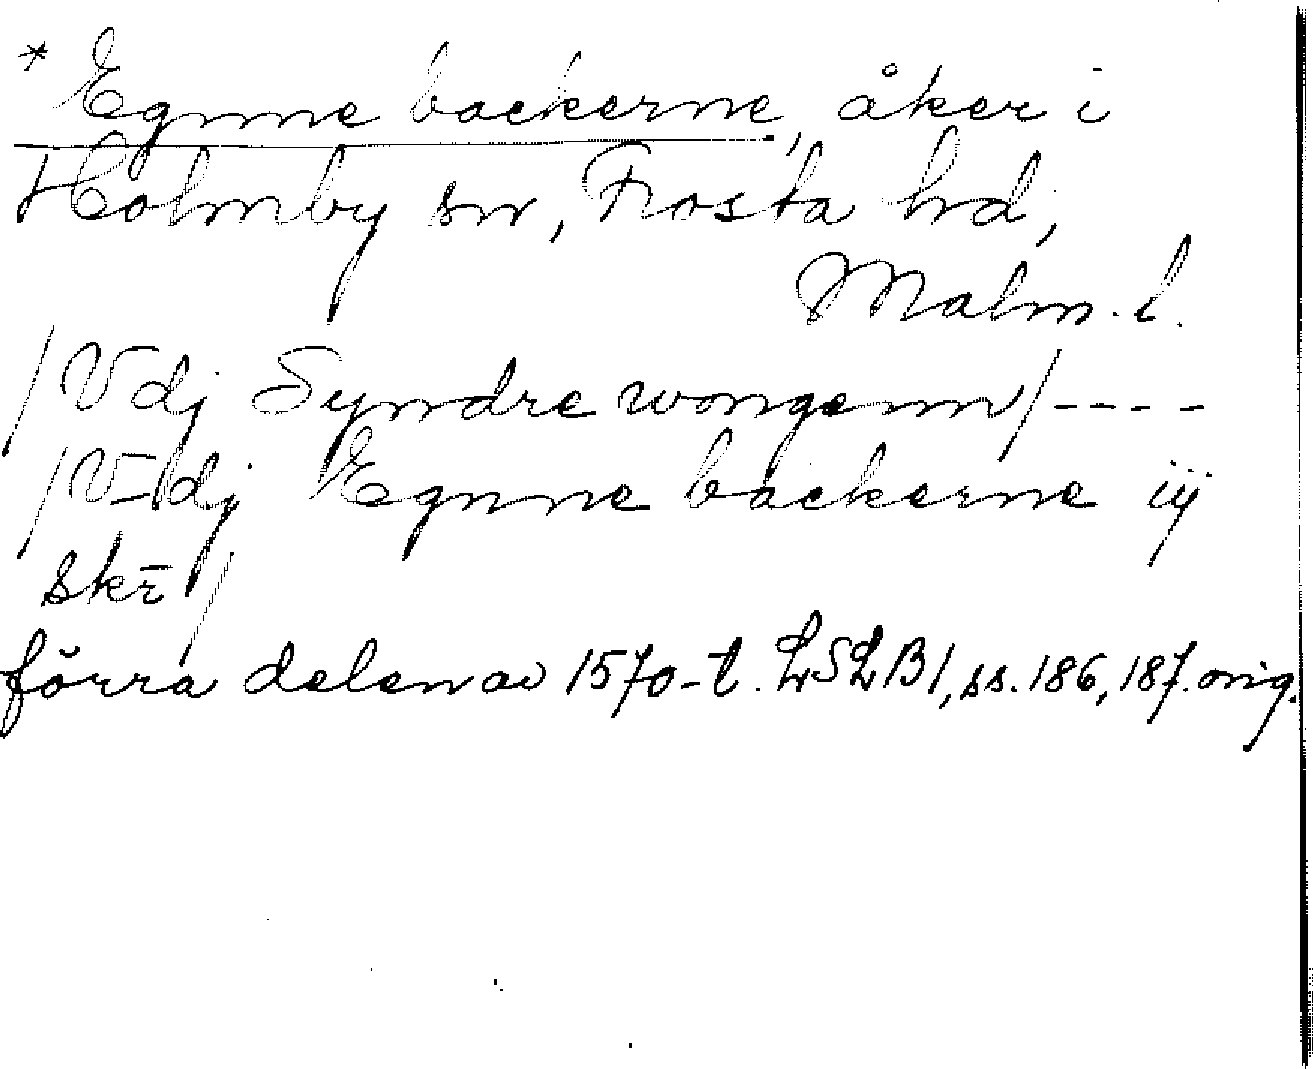 * Egnne backerne, åker i
Holmby sn, Frosta hd,
Malm. l.
/Vdj Syndre wongenn/----
/V-ldj Egnne backerne iij
skr̄/
förra delen av 1570-t. LSLB1, ss. 186, 187. orig.